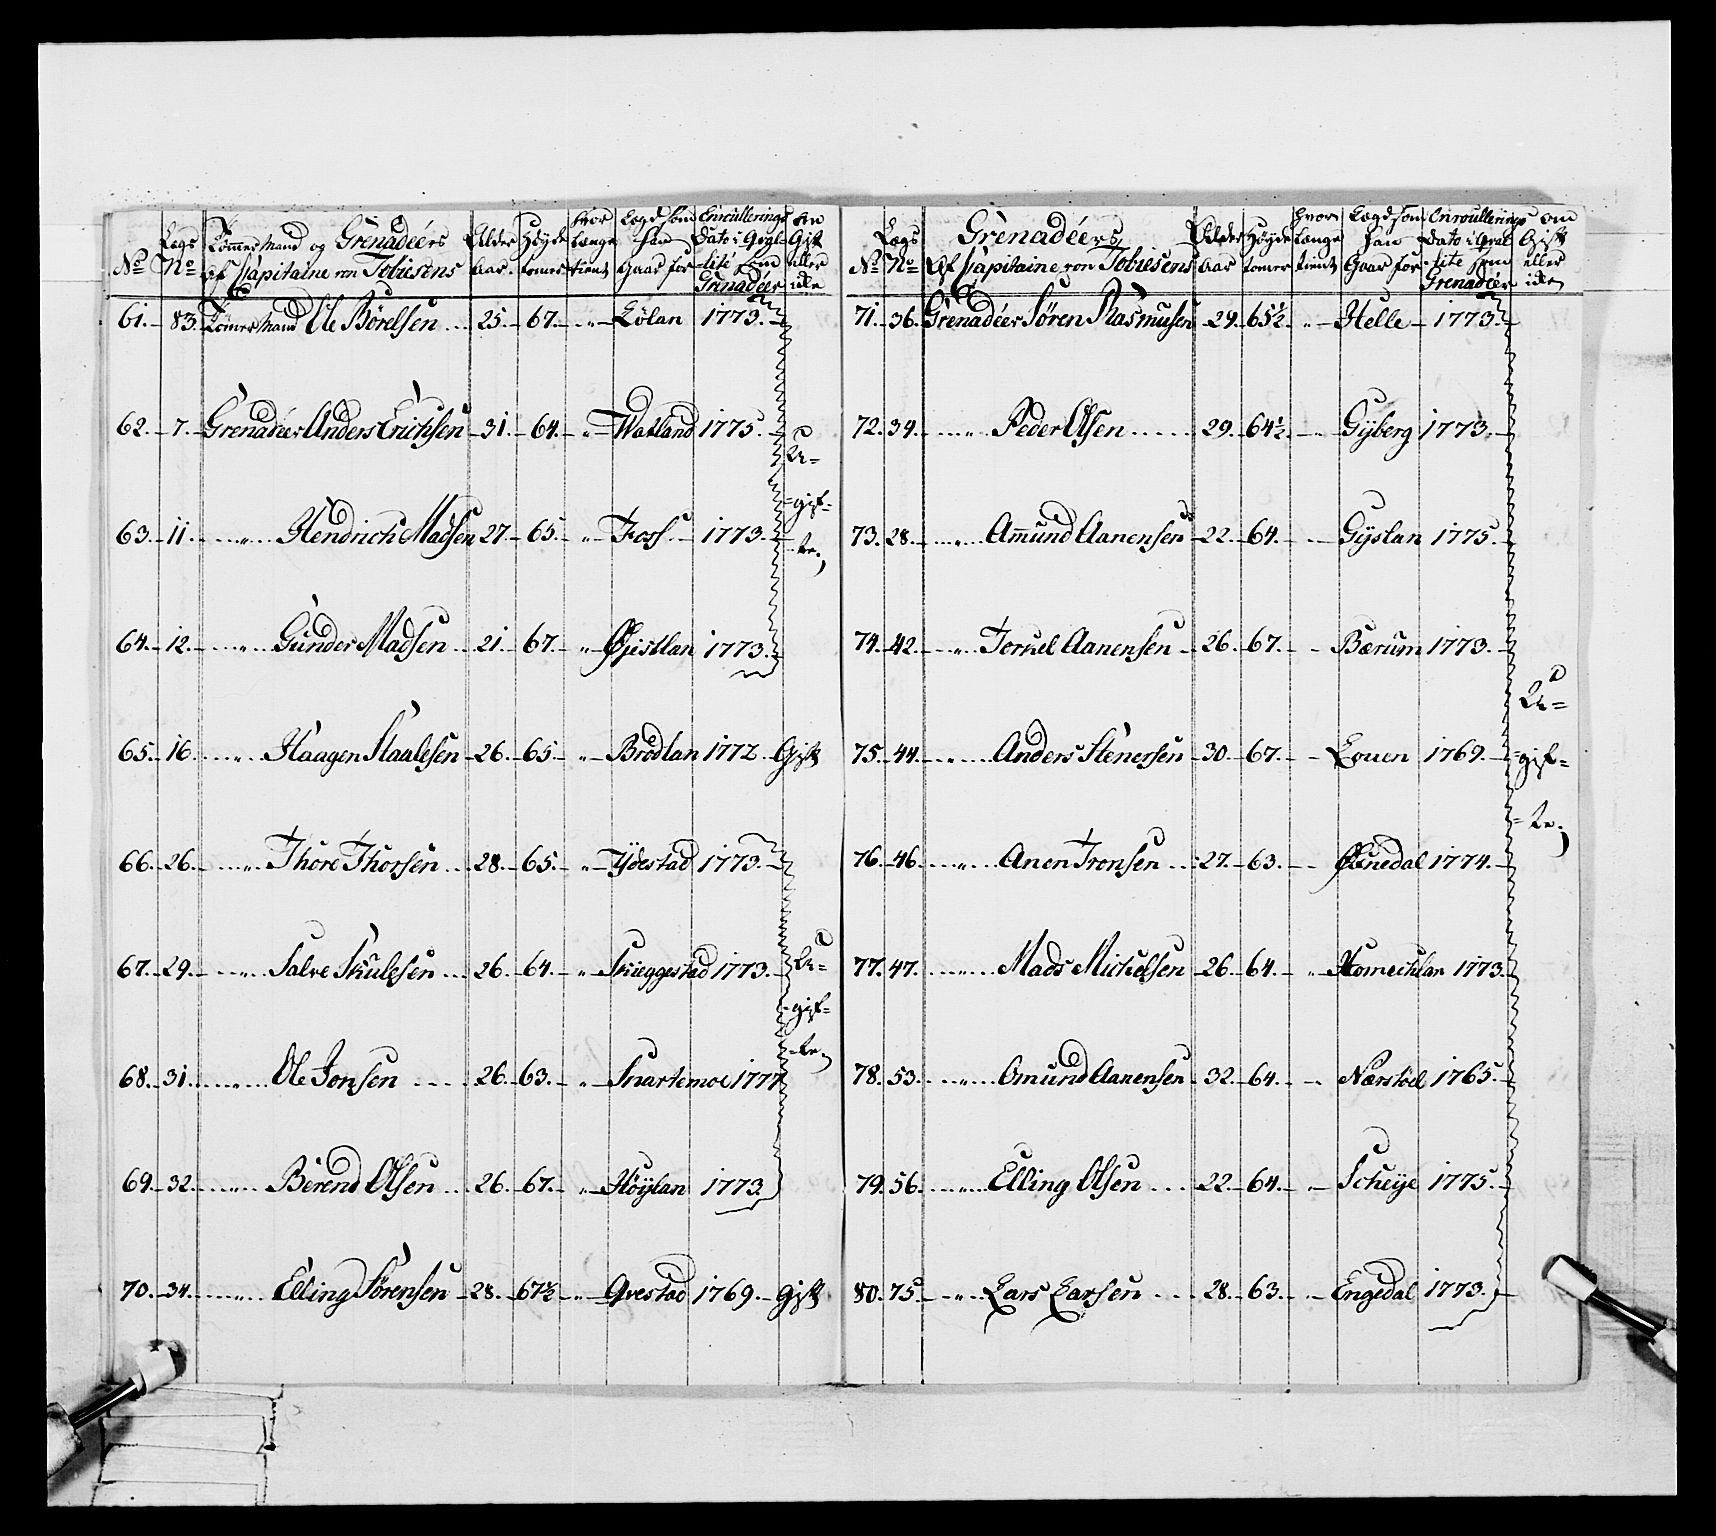 Tømmermand og Grenadéers
af Capitaine von Tobiesens
No
Lægs No
Alder Aar
Høyde tommer
hvor Længe tient
Lægd som han Gaar for
Enroullerings Dato i Qvalité som Grenadéer
om Gift eller icke
61. 83. Tømmermand Ole Börelsen 25. 67. " Lölan 1773.
62. 7. Grenadéer Anders Erichsen 31. 64. " Watland 1775.
63. 11. " Hendrich Madsen 27. 65. " Foss 1773.
64. 12. " Gunder Madsen 21. 67. " Øjestlan 1773.
U=
=gif=
=te.
65. 16. " Haagen Staalesen 26. 65. " Brödlan 1772. Gift
66. 26. " Thore Thorsen 28. 65. " Ydestad 1773.
67. 29. " Salve Skulesen 26. 64. " Skieggestad 1773.
68. 31. " Ole Jonsen 26. 63. " Snartemoe 1777
69. 32. " Berend Olsen 26. 67. " Höylan 1773
U=
gif=
=te,
70. 34. " Elling Sörensen 28. 67½ " Qvestad 1769. Gift
Grenadéers
Af Capitaine von Tobiesens
No
Lægs No
Alder Aar
Høyde tommer
hvor Længe tient
Lægd som han Gaar for
Enroullerings Dato i Qvalité som Grenadéer
om Gift eller icke
71. 36. Grenadéer Sören Rasmusen 29. 65½ " Helle 1773.
72. 34. " Peder Olsen 29. 64½ Gyberg 1773.
73. 28. " Amund Aanensen 22. 64. Gyslan 1775.
74. 42. " Torkel Aanensen 26. 67. Bærum 1773.
75. 44. " Anders Stenersen 30. 67. Louen 1769.
76. 46. " Anen Tronsen 27. 63. Øenedal 1774.
77. 47. " Mads Michelsen 26. 64. " Homechlan 1773.
78. 53. " Omund Aanensen 32. 64. " Nærstöel 1765.
79. 56. " Elling Olsen 22. 64. Scheije 1775.
80. 75. " Lars Larsen 28. 63. Engedal 1773.
U=
=gif=
=te.